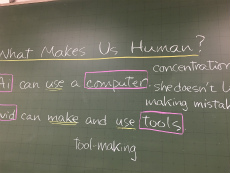 What Makes Us Human?
concentration
Ai can use a computer.
she doesn't
making mistak
can make and use tools
tool-making